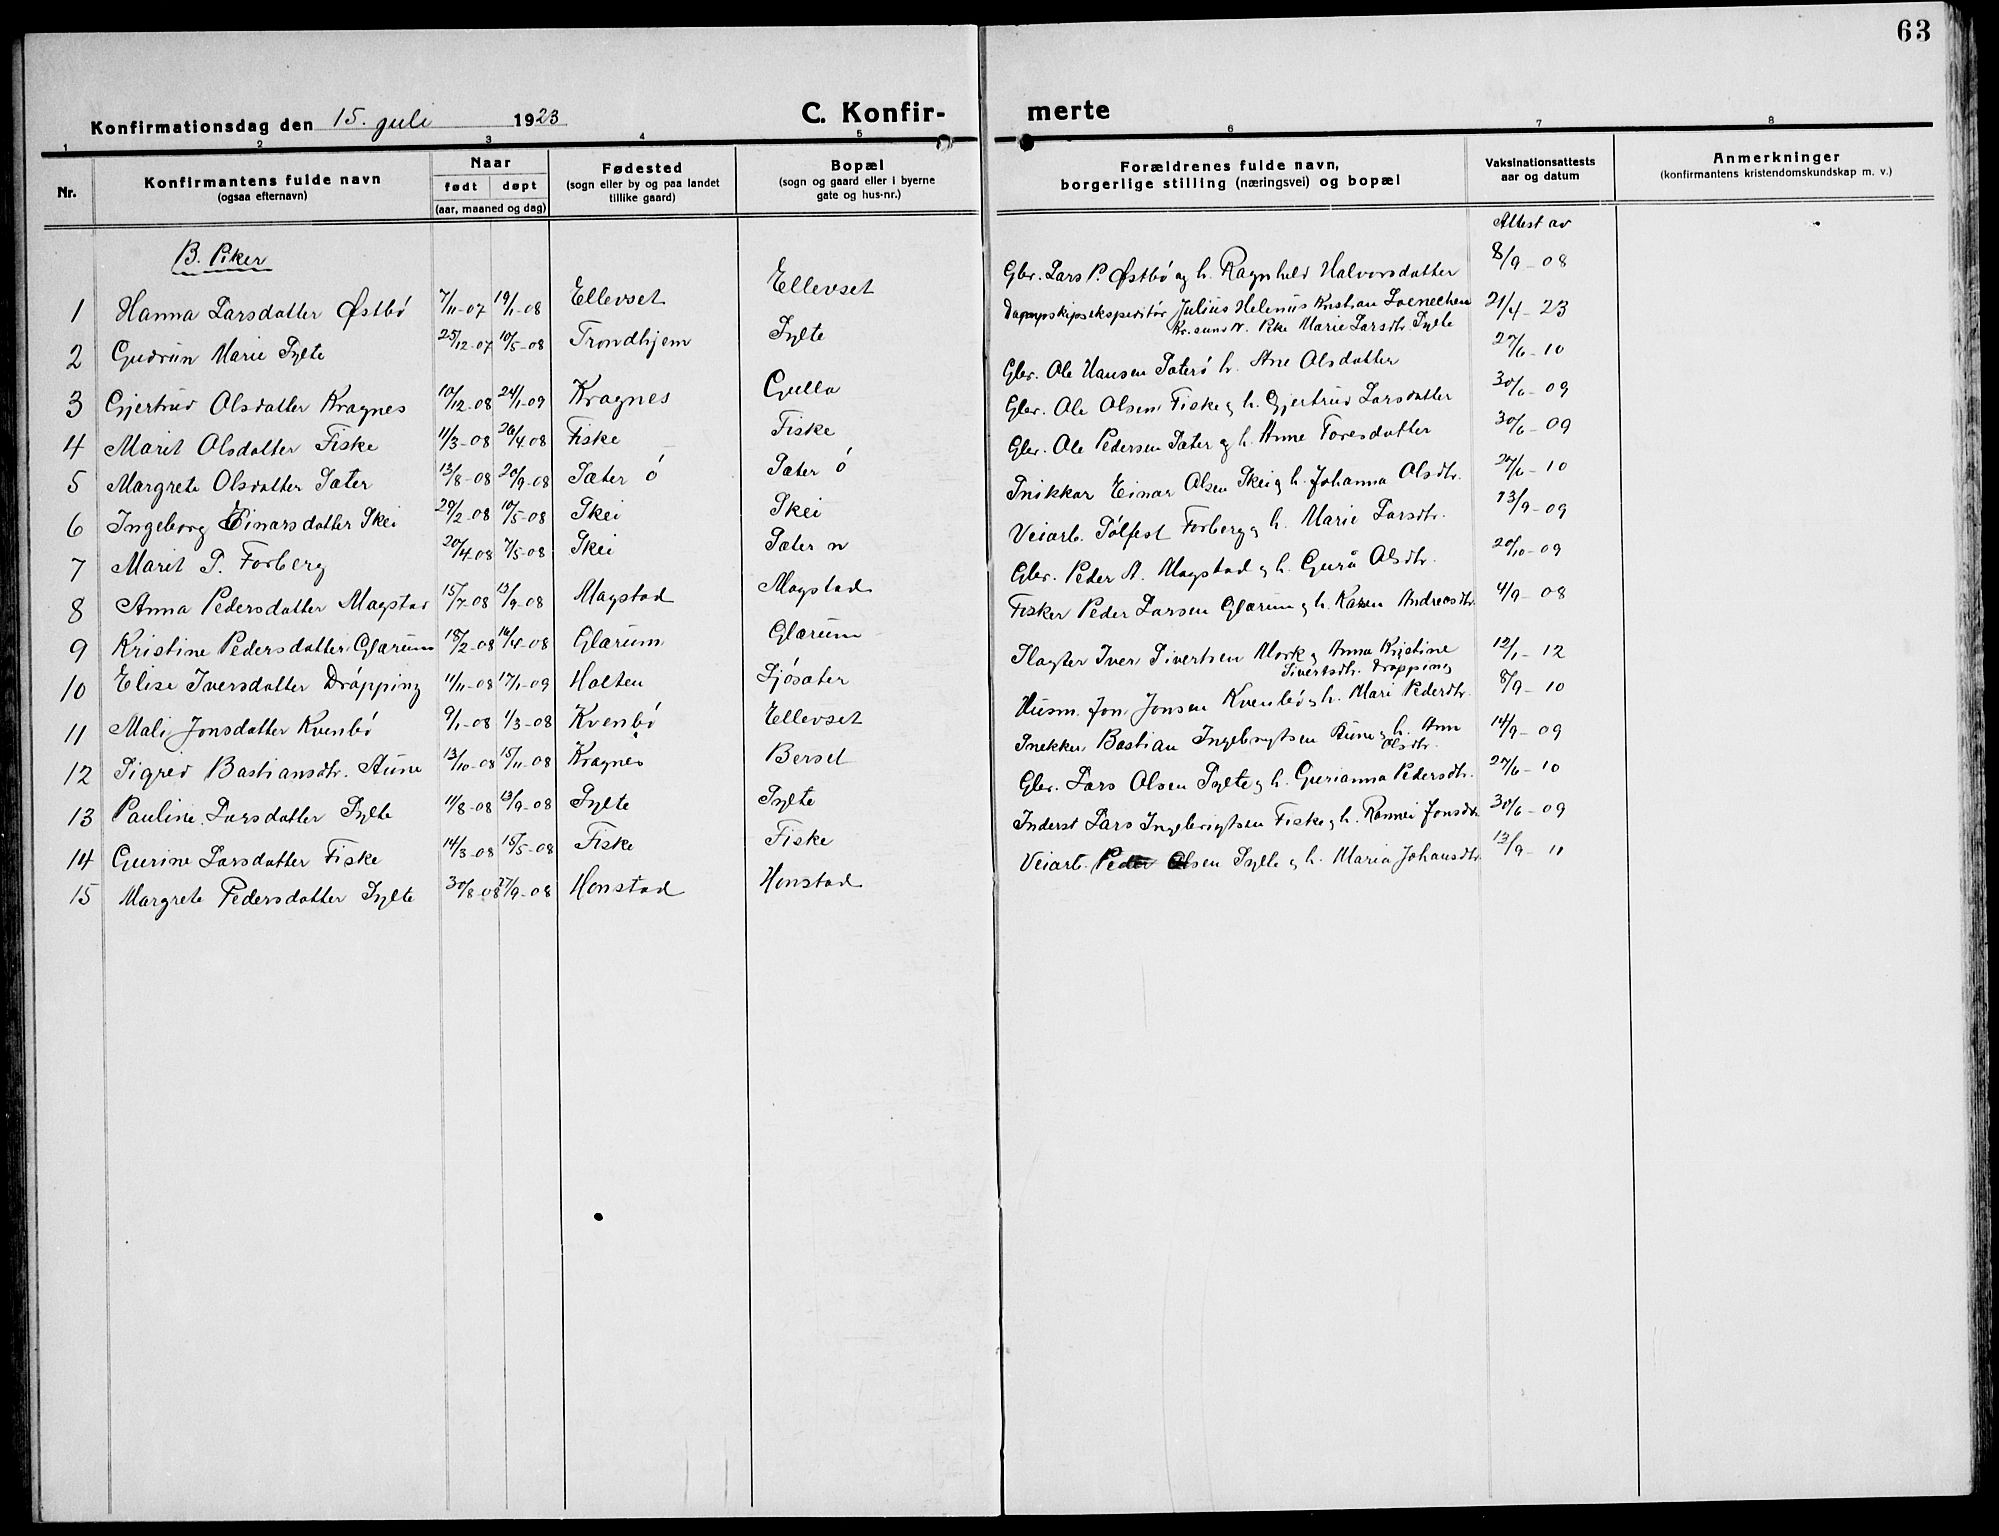 63
Konfirmationsdag den 15. juli 1923
C. Konfir- merte
1 2 3 4 5 6 7 8
Nr. Konfirmantens fulde navn (ogsaa efternavn) Naar født døpt (aar, maaned og dag) Fødested (sogn eller by og paa landet tillike gaard) Bopæl (sogn og gaard eller i byerne gate og hus-nr.) Forældrenes fulde navn, borgerlige stilling (næringsvei) og bopæl Vaksinationsattests aar og datum Anmerkninger (konfirmantens kristendomskundskap m. v.)
Attest av
B. Piker
1 Hanna Larsdatter Østbø 7/11-07 19/1-08 Ellevset Ellevset Gbr. Lars P. Østbø og h. Ragnhild Halvorsdatter 8/9-08
2 Gudrun Marie Sylte 25/12-07 10/5-08 Trondhjem Sylte Dampskipsekspeditør Julius Helenus Kristian Loenechen 21/4-23
Kr.sund N. Pike Marie Larsdtr Sylte
3 Gjertrud Olsdatter Kragnes 10/12-08 24/1-09 Kragnes Gulla Gbr. Ole Hansen Sæterø h. Ane Olsdatter 27/6-10
4 Marit Olsdatter Fiske 11/3-08 26/4-08 Fiske Fiske Gbr. Ole Olsen Fiske og h. Gjertrud Larsdatter 30/6-09
5 Margrete Olsdatter Sæter 13/8-08 20/9-08 Sæter ø Sæter ø Gbr. Ole Pedersen Sæter og h. Anne Toresdatter 30/6-09
6 Ingeborg Einarsdatter Skei 29/2-08 10/5-08 Skei Skei Snikkar Einar Olsen Skei og h. Johanna Olsdtr. 27/6-10
7 Marit S. Forberg 20/4-08 7/5-08 Skei Sæter n Veiarb. Sølfest Forberg og h. Marie Larsdtr. 13/9-09
8 Anna Pedersdatter Magstad 15/7-08 13/9-08 Magstad Magstad Gbr. Peder A. Magstad og h. Gurå Olsdtr. 20/10-09
9 Kristine Pedersdatter Glærum 18/2-08 16/4-08 Glærum Glærum Fisker Peder Larsen Glærum og h. Karen Andreasdtr. 4/9-08
10 Elise Iversdatter Drøpping 11/11-08 17/1-09 Holten Sjøsæter Slagter Iver Sivertsen Mork og Anna Kristine 12/1-12
Sivertsdtr. Drøpping
11 Mali Jonsdatter Kvenbø 9/1-08 1/3-08 Kvenbø Ellevset Husm. Jon Jonsen Kvenbø og h. Mari Pedersdtr. 8/9-10
12 Sigrid Bastiansdtr. Aune 13/10-08 15/11-08 Kragnes Berset Snekker Bastian Ingebrigtsen Aune og h. Ann 14/9-09
Olsdtr.
13 Pauline Larsdatter Sylte 11/8-08 13/9-08 Sylte Sylte Gbr. Lars Olsen Sylte og h. Gurianna Pedersdtr. 27/6-10
14 Gurine Larsdatter Fiske 14/3-08 15/5-08 Fiske Fiske Inderst Lars Ingebrigtsen Fiske og h. Rannei Jonsdtr 30/6-09
15 Margrete Pedersdatter Sylte 30/8-08 27/9-08 Honstad Honstad Veiarb. Peder Olsen Sylte og h. Maria Johansdtr. 13/9-11